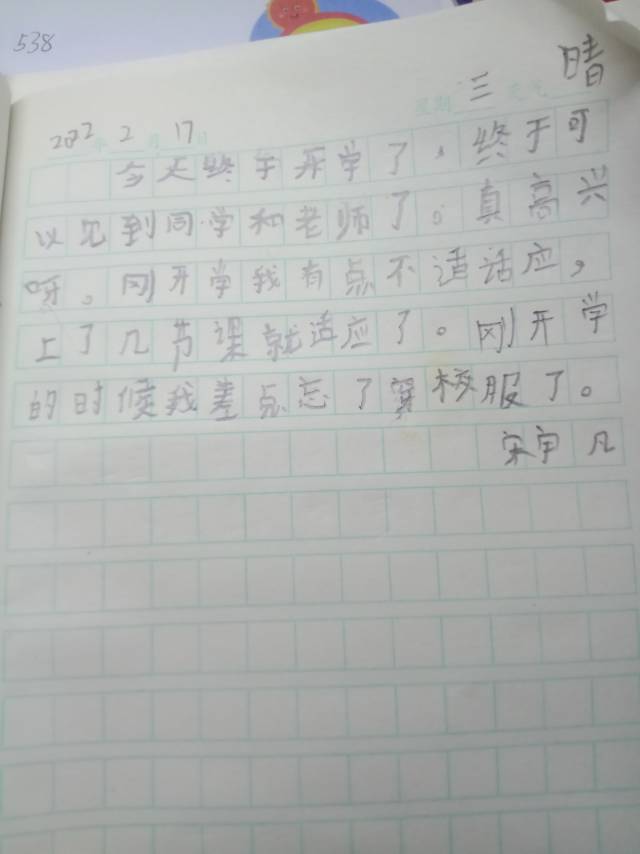 538
2022年2月17日 星期三 天气晴
今天终于开学了，终于可
以见到同学和老师了。真高兴
呀。刚开学我有点不适话应，
上了几节课就适应了。刚开学
的时候我差点忘了穿校服了。
宋宇凡